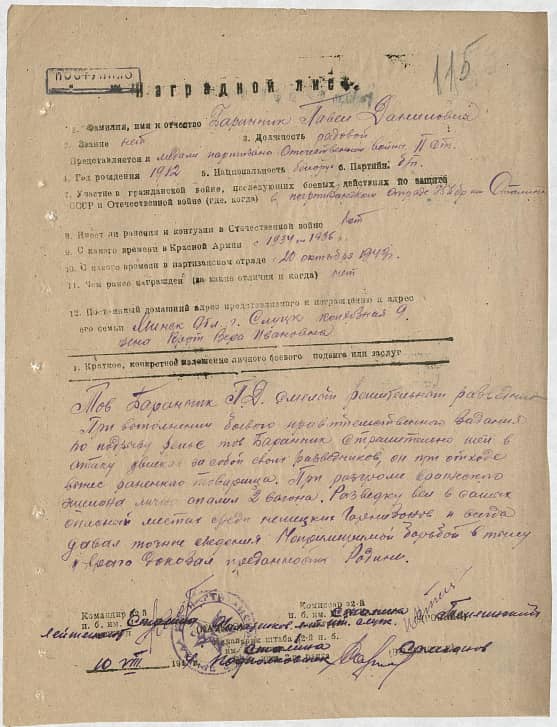 ПОСТУПИЛО
115
Наградной лист.
1. Фамилия, имя и отчество Баранчик Павел Данилович
2. Звание нет 3. Должность рядовой
Представляется к медали партизана Отечественной войны II ст.
4. Год рождения 1912 5. Национальность белорус 6. Партийн. б/п.
7. Участие в гражданской войне, последующих боевых действиях по защите
СССР и Отечественной войне (где, когда) в партизанском отряде
8. Имеет ли ранения и контузии в Отечественной войне нет
9. С какого времени в Красной Армии с 1934 по 1936 г.
10. С какого времени в партизанском отряде с 20 октября
11. Чем ранее награжден (за какие отличия и когда) нет
12. Постоянный домашний адрес представляемого к награждению и адрес
его семьи Минск обл. г. Слуцк 9
жена Вера Ивановна
1. Краткое, конкретное изложение личного боевого подвига или заслуг
Тов Баранчик П.Д. смелый решительный разведчик
При выполнении боевого задания
по подрыву рельс тов Баранчик стремительно шел в
атаку увлекая за собой своих разведчиков, он при отходе
вынес раненного товарища. При разгроме вражеского
эшелона лично спалил 2 вагона. Разведку вел в самых
опасных местах среди немецких гарнизонов и всегда
давал точные сведения Непримиримой борьбой в тылу
у врага доказал преданность Родине.
Командир 32-й Комиссар 32-й
п. б. им. Сталина п. б. им. Сталина
лейтенант
Начальник штаба 32-й п. б.
Сталина
10 VIII подполковник